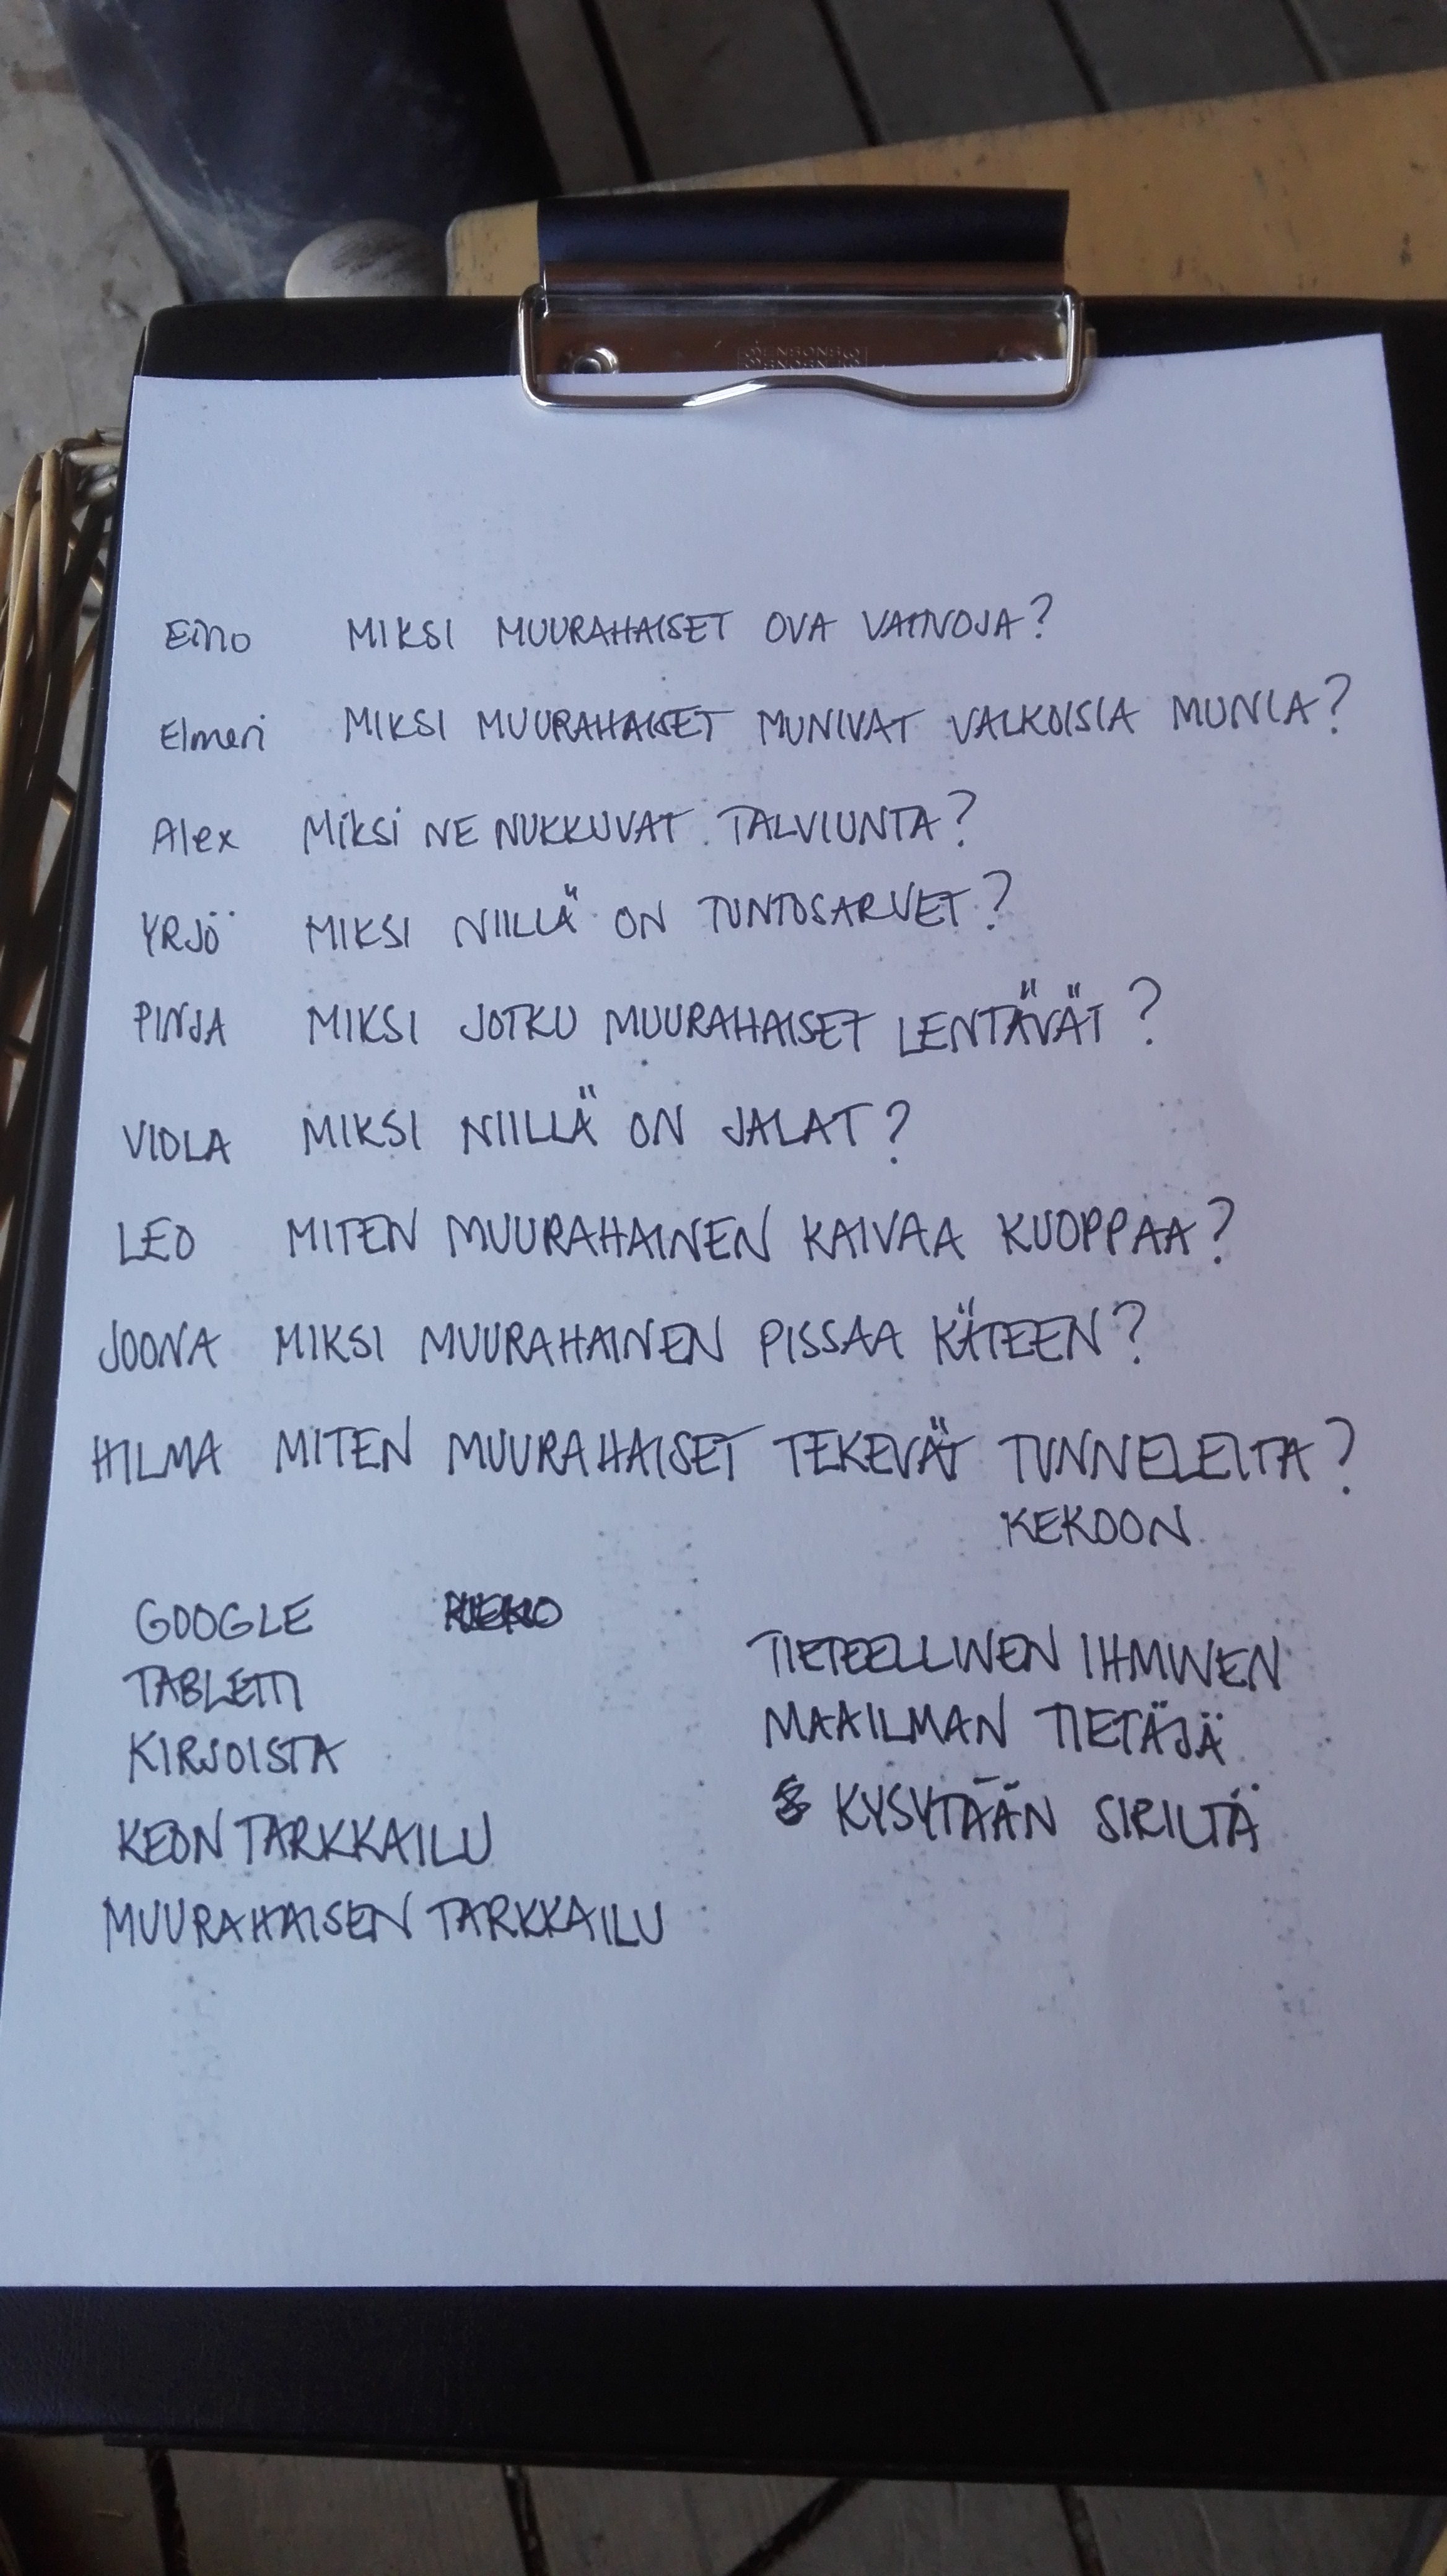 Eino MIKSI MUURAHAISET OVA VAINOJA?
Elmeri MIKSI MUURAHAISET MUNIVAT VALKOISIA MUNIA?
Alex MIKSI NE NUKKUVAT TALVIUNTA?
YRJÖ MIKSI NIILLÄ ON TUNTOSARVET?
PINJA MIKSI JOTKU MUURAHAISET LENTÄVÄT?
VIOLA MIKSI NIILLÄ ON JALAT?
LEO MITEN MUURAHAINEN KAIVAA KUOPPAA?
JOONA MIKSI MUURAHAINEN PISSAA KÄTEEN?
HILMA MITEN MUURAHAISET TEKEVÄT TUNNELEITA?
KEKOON
GOOGLE
TABLETTI
KIRJOISTA
KEON TARKKAILU
MUURAHAISEN TARKKAILU
TIETEELLINEN IHMINEN
MAAILMAN TIETÄJÄ
KYSYTÄÄN SIRILTÄ